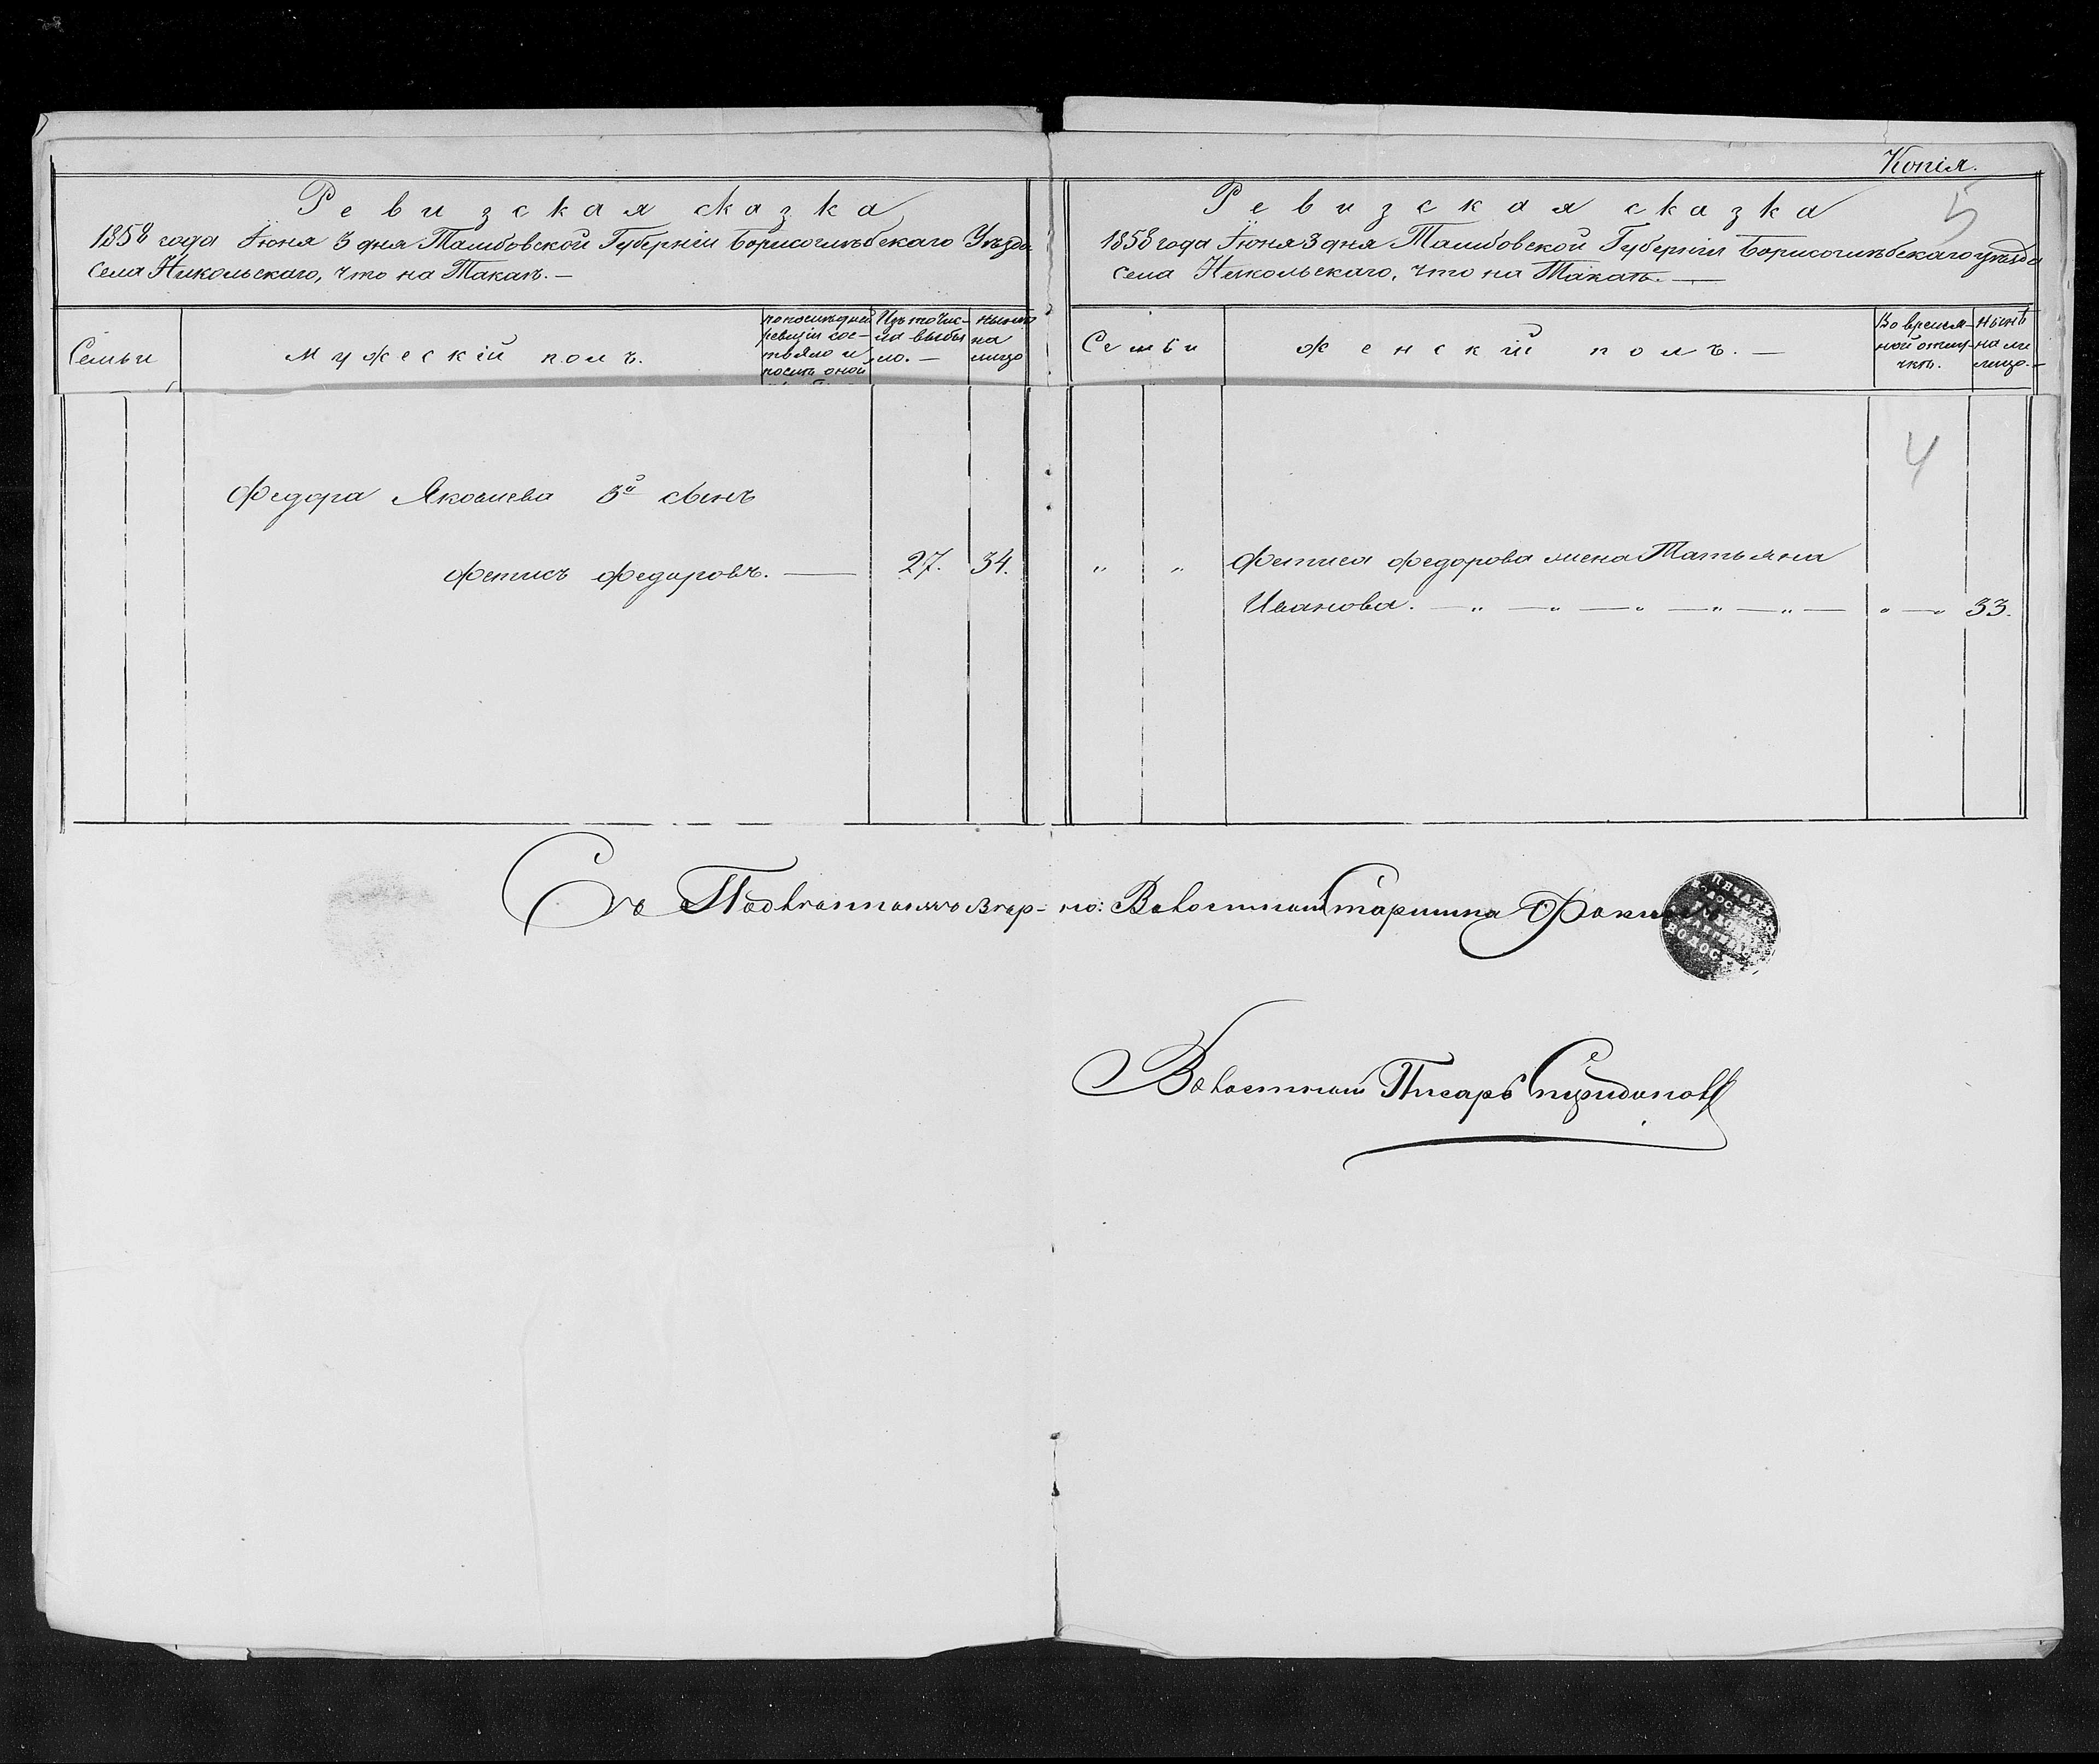 Копія.
5
Ревизская сказка
1858 года Іюня 3 дня Тамбовской Губерніи Борисоглѣбскаго Уѣзда
села Никольскаго, что на Такаѣ. —
Семьи
мужескій полъ.
по послѣдней
ревизіи сос-
тояло и
послѣ оной
Изъ то числ-
ла выбы
ло. —
нынѣ
на
лицо
Ревизская сказка
1858 года Іюня 3 дня Тамбовской Губерніи Борисоглѣбскаго уѣзда
села Никольскаго, что на Такаѣ. —
Семьи
женскій полъ. —
Во времен-
ной отлу-
чкѣ.
нынѣ
на ли
лицо. -
4
Федора Яковлева 3й сынъ
Фетисъ Федоровъ. — 27. 34.
„ „ Фетиса Федорова жена Татьяна
Иванова. — „ — „ — „ — „ — „ — „ — „ 33.
Съ Подлиннымъ вѣр-но: Волостной Старшина Фокинъ
ПЕЧАТЬ
ВОЛОС
Волостной Писарь Спиридоновъ